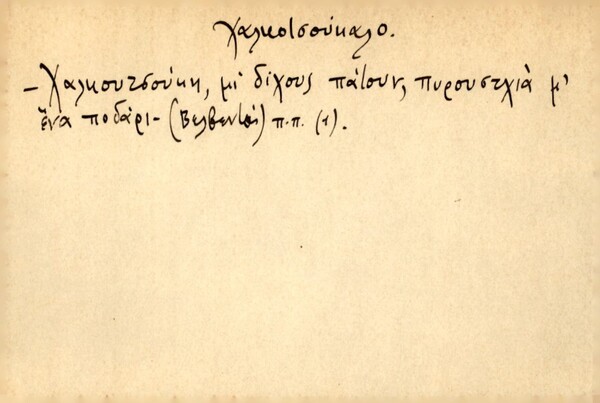 Χαλκοτσούκαλο.
– Χαλκουτσούκι, μι δίχους πάτουν, πυρουστχιὰ μ'
ἕνα ποδάρι – (Βελβεντός) π.π. (1).